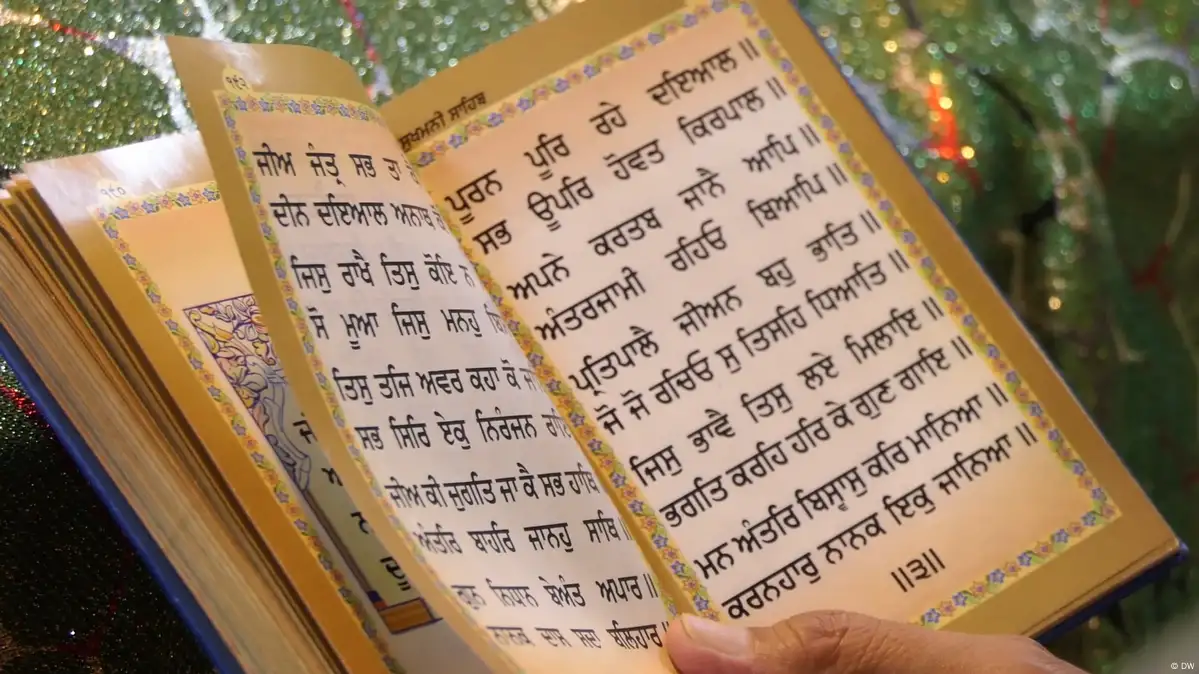 ੧੬੨
ਜੀਅ ਜੰਤ੍ਰ ਸਭ ਤਾ
ਦੀਨ ਦਇਆਲ ਅਨਾਥ
ਜਿਸੁ ਰਾਖੈ ਤਿਸੁ ਕੋਇ ਨ
ਸੋ ਮੂਆ ਜਿਸੁ ਮਨਹੁ
ਤਿਸੁ ਤਜਿ ਅਵਰ ਕਹਾ ਕੋ
ਸਭ ਸਿਰਿ ਏਕੁ ਨਿਰੰਜਨ
ਜੀਅ ਕੀ ਜੁਗਤਿ ਜਾ ਕੈ ਸਭ ਹਾਥਿ
ਅੰਤਰਿ ਬਾਹਰਿ ਜਾਨਹੁ ਸਾਥਿ ॥
ਗੁਨ ਨਿਧਾਨ ਬੇਅੰਤ ਅਪਾਰ ॥
ਨਾਨਕ ਦਾਸ ਸਦਾ ਬਲਿਹਾਰ
ਸੁਖਮਨੀ ਸਾਹਿਬ
ਪੂਰਨ ਪੂਰਿ ਰਹੇ ਦਇਆਲ ॥
ਸਭ ਊਪਰਿ ਹੋਵਤ ਕਿਰਪਾਲ ॥
ਅਪਨੇ ਕਰਤਬ ਜਾਨੈ ਆਪਿ ॥
ਅੰਤਰਜਾਮੀ ਰਹਿਓ ਬਿਆਪਿ ॥
ਪ੍ਰਤਿਪਾਲੈ ਜੀਅਨ ਬਹੁ ਭਾਤਿ ॥
ਜੋ ਜੋ ਰਚਿਓ ਸੁ ਤਿਸਹਿ ਧਿਆਤਿ ॥
ਜਿਸੁ ਭਾਵੈ ਤਿਸੁ ਲਏ ਮਿਲਾਇ ॥
ਭਗਤਿ ਕਰਹਿ ਹਰਿ ਕੇ ਗੁਣ ਗਾਇ ॥
ਮਨ ਅੰਤਰਿ ਬਿਸ੍ਵਾਸੁ ਕਰਿ ਮਾਨਿਆ ॥
ਕਰਨਹਾਰੁ ਨਾਨਕ ਇਕੁ ਜਾਨਿਆ ॥
॥੩॥
© DW